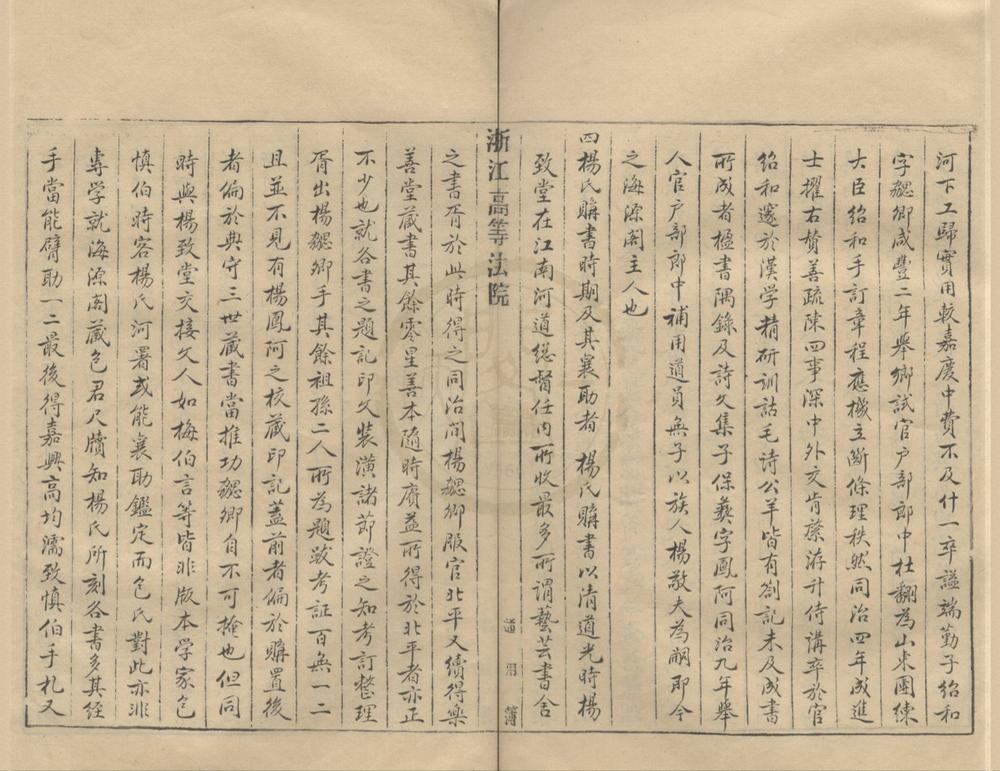 河下工歸實用較嘉慶中費不及什一卒謚端勤子紹和
字勰卿咸豐二年舉鄉試官戶部郎中杜翻為山東團練
大臣紹和手訂章程應機立斷條理秩然同治四年成進
士擢右贊善疏陳四事深中外交肯綮洊升侍講卒於官
紹和邃於漢学精研訓詁毛诗公羊皆有劄記未及成書
所成者楹書隅錄及詩文集子保彝字鳳阿同治九年舉
人官户部郎中補用道員無子以族人楊敬夫為嗣即今
之海源阁主人也
四楊氏購書時期及其襄助者 楊氏購書以清道光時楊
致堂在江南河道總督任內所收最多所謂藝芸書舍
浙江高等法院
通用簿
之書胥於此時得之同治间楊勰卿服官北平又續得樂
善堂藏書其餘零星善本隨時賡益所得於北平者亦正
不少也就各書之題記印文裝潢諸節證之知考訂整理
胥出楊勰卿手其餘祖孫二人所為題跋考証百無一二
且並不見有楊鳳阿之校藏印記蓋前者偏於購置後
者偏於典守三世藏書當推功勰卿自不可掩也但同
時與楊致堂交接文人如梅伯言等皆非版本学家包
慎伯時客楊氏河署或能襄助鑑定而包氏對此亦非
專学就海源阁藏包君尺牘知楊氏所刻各書多其經
手當能臂助一二最後得嘉興高均濡致慎伯手札又